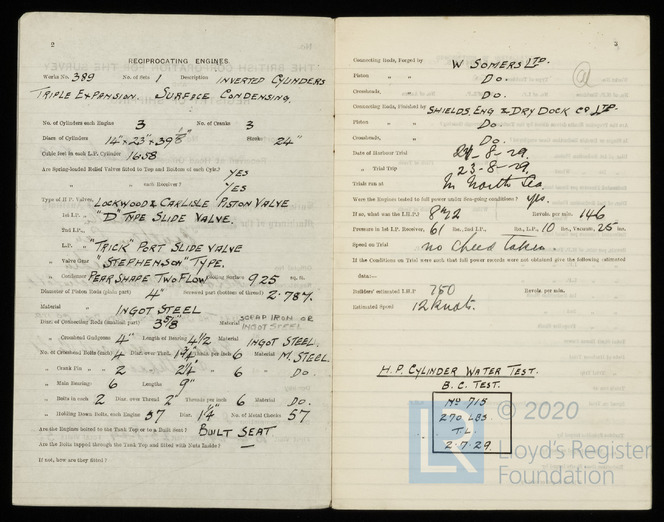 2
RECIPROCATING ENGINES.
Works No. 389 No. of Sets 1 Description INVERTED CYLINDERS
TRIPLE EXPANSION. SURFACE CONDENSING.
No. of Cylinders each Engine 3 No. of Cranks 3
Diars. of Cylinders 14" x 23" x 39 1/8" Stroke 24"
Cubic feet in each L.P. Cylinder 16.58
Are Spring-loaded Relief Valves fitted to Top and Bottom of each Cyls.? YES
" " each Receiver? YES
Type of H.P. Valves, LOCKWOOD & CARLISLE PISTON VALVE
1st I.P. " "D" TYPE SLIDE VALVE.
2nd I.P. "
L.P. " "TRICK" PORT SLIDE VALVE
" Valve Gear "STEPHENSON" TYPE.
" Condenser PEAR SHAPE TWO FLOW Cooling Surface 925 sq. ft.
Diameter of Piston Rods (plain part) 4" Screwed part (bottom of thread) 2.787.
Material INGOT STEEL
Diar. of Connecting Rods (smallest part) 3 5/8" Material SCRAP IRON OR INGOT STEEL
" Crosshead Gudgeons 4" Length of Bearing 4 1/2 Material INGOT STEEL.
No. of Crosshead Bolts (each) 4 Diar. over Thrd. 1 3/4" Thrds. per inch 6 Material M. STEEL
" Crank Pin " 2 " 2 1/4" " 6 " Do.
" Main Bearings 6 Lengths 9"
" Bolts in each 2 Diar. over Thread 2" Threads per inch 6 Material Do.
" Holding Down Bolts, each Engine 57 Diar. 1 1/4" No. of Metal Chocks 57
Are the Engines bolted to the Tank Top or to a Built Seat? BUILT SEAT
Are the Bolts tapped through the Tank Top and fitted with Nuts Inside? —
If not, how are they fitted?
3
Connecting Rods, Forged by W SOMERS LTD.
Piston " " Do.
Crossheads, " Do.
Connecting Rods, Finished by SHIELDS. ENG & DRY DOCK CO LTD.
Piston " " Do
Crossheads, " Do.
Date of Harbour Trial -8-29.
" Trial Trip 23-8-29.
Trials run at In North Sea.
Were the Engines tested to full power under Sea-going conditions? Yes.
If so, what was the I.H.P.? 822 Revols. per min. 146
Pressure in 1st I.P. Receiver, 61 lbs., 2nd I.P., lbs., L.P., 10 lbs., Vacuum, 25 ins.
Speed on Trial no Speed taken.
If the Conditions on Trial were such that full power records were not obtained give the following estimated
data:—
Builders' estimated I.H.P. 750 Revols. per min.
Estimated Speed 12 knots.
H.P. CYLINDER WATER TEST.
B.C. TEST.
No 715
270 LBS
T.L.
2.7.29.
© 2020
LR
Lloyd's Register
Foundation